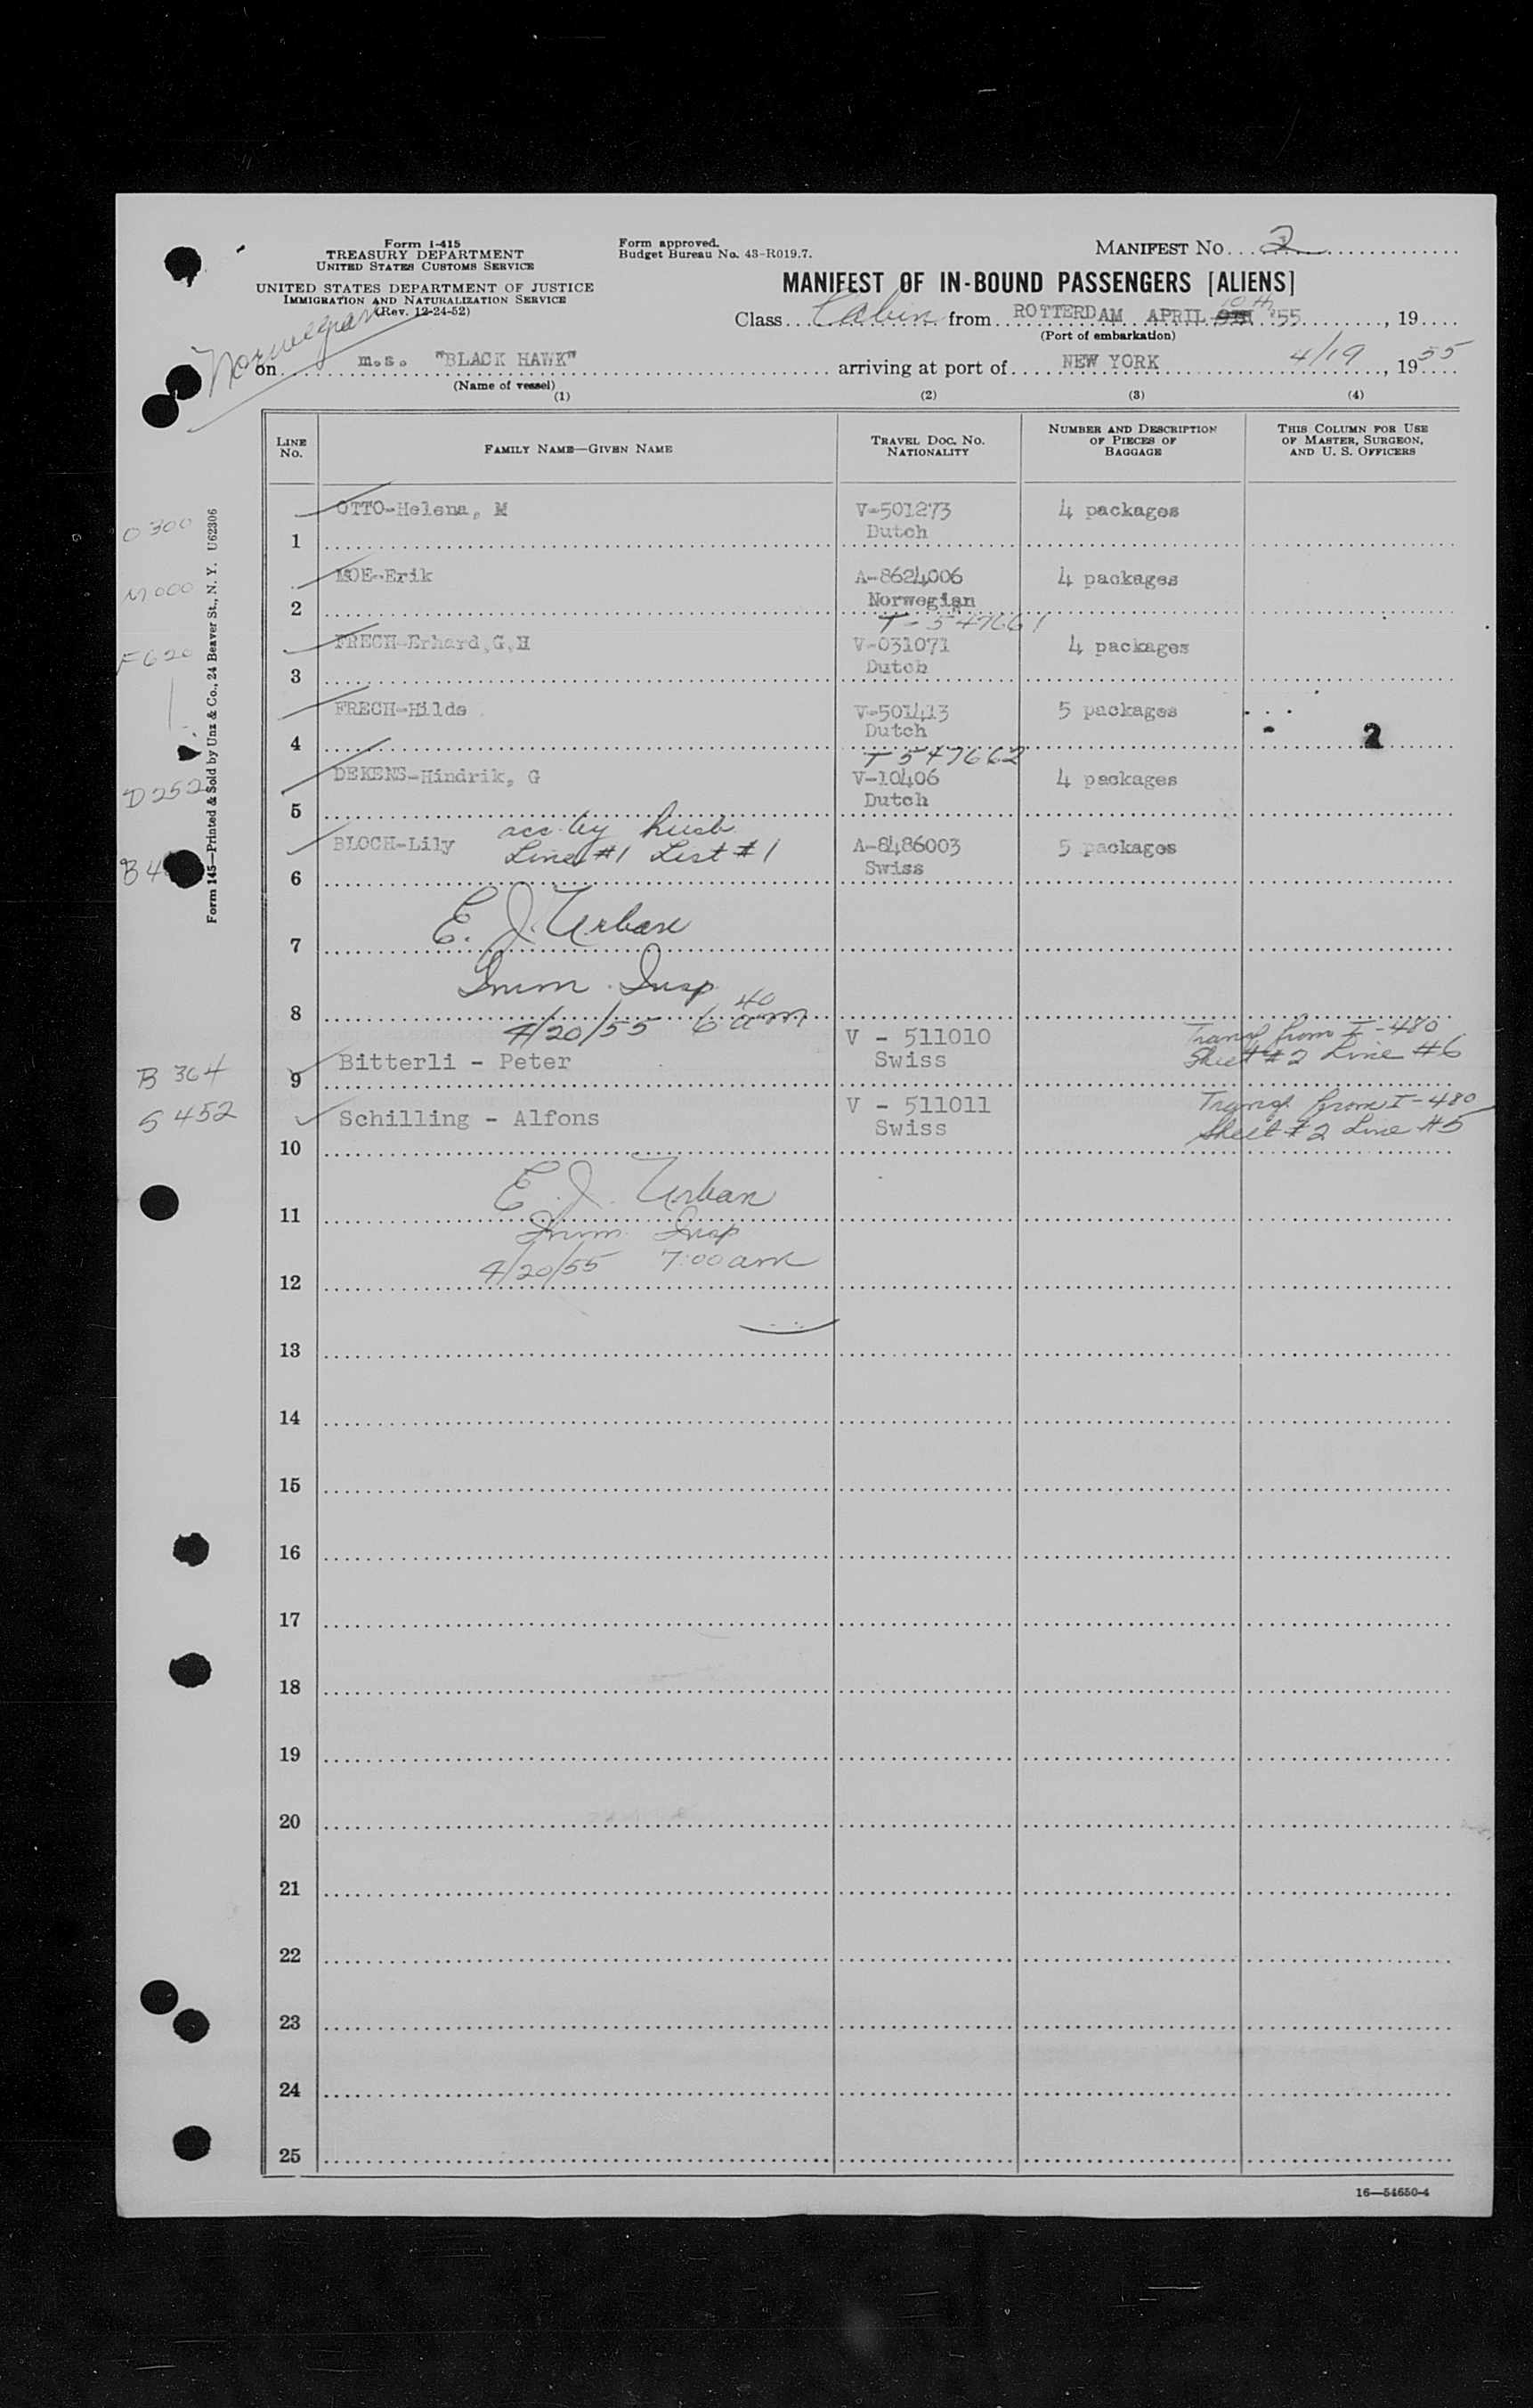 Form I-415
TREASURY DEPARTMENT
UNITED STATES CUSTOMS SERVICE
UNITED STATES DEPARTMENT OF JUSTICE
IMMIGRATION AND NATURALIZATION SERVICE
(Rev. 12-24-52)
Norwegian
Form approved.
Budget Bureau No. 43-R019.7.
MANIFEST NO. 2
MANIFEST OF IN-BOUND PASSENGERS [ALIENS]
Class Cabin from ROTTERDAM APRIL 10th '55, 19
(Port of embarkation)
on m.s. "BLACK HAWK" arriving at port of NEW YORK 4/19, 1955
(Name of vessel)
(1) (2) (3) (4)
LINE NO. FAMILY NAME—GIVEN NAME TRAVEL DOC. NO. NATIONALITY NUMBER AND DESCRIPTION OF PIECES OF BAGGAGE THIS COLUMN FOR USE OF MASTER, SURGEON, AND U. S. OFFICERS
O 300 1 OTTO-Helena, M V-501273 Dutch 4 packages
M 000 2 MOE-Erik A-8624006 Norwegian 4 packages
T-547661
F 620 3 FRECH-Erhard,G,H V-031071 Dutch 4 packages
4 FRECH-Hilde V-501413 Dutch 5 packages 2
T 547662
D 252 5 DEKENS-Hindrik, G V-10406 Dutch 4 packages
B 4 6 BLOCH-Lily acc by husb Line #1 List #1 A-8486003 Swiss 5 packages
7 E. J. Urban
8 Imm. Insp
4/20/55 6 40 am
B 364 9 Bitterli - Peter V - 511010 Swiss Transf from I-480 Sheet #2 Line #6
S 452 10 Schilling - Alfons V - 511011 Swiss Transf from I-480 Sheet #2 Line #5
11 E. J. Urban
Imm Insp
12 4/20/55 7:00 am
13
14
15
16
17
18
19
20
21
22
23
24
25
16—54650-4
Form 145—Printed & Sold by Unz & Co., 24 Beaver St., N. Y. U62306